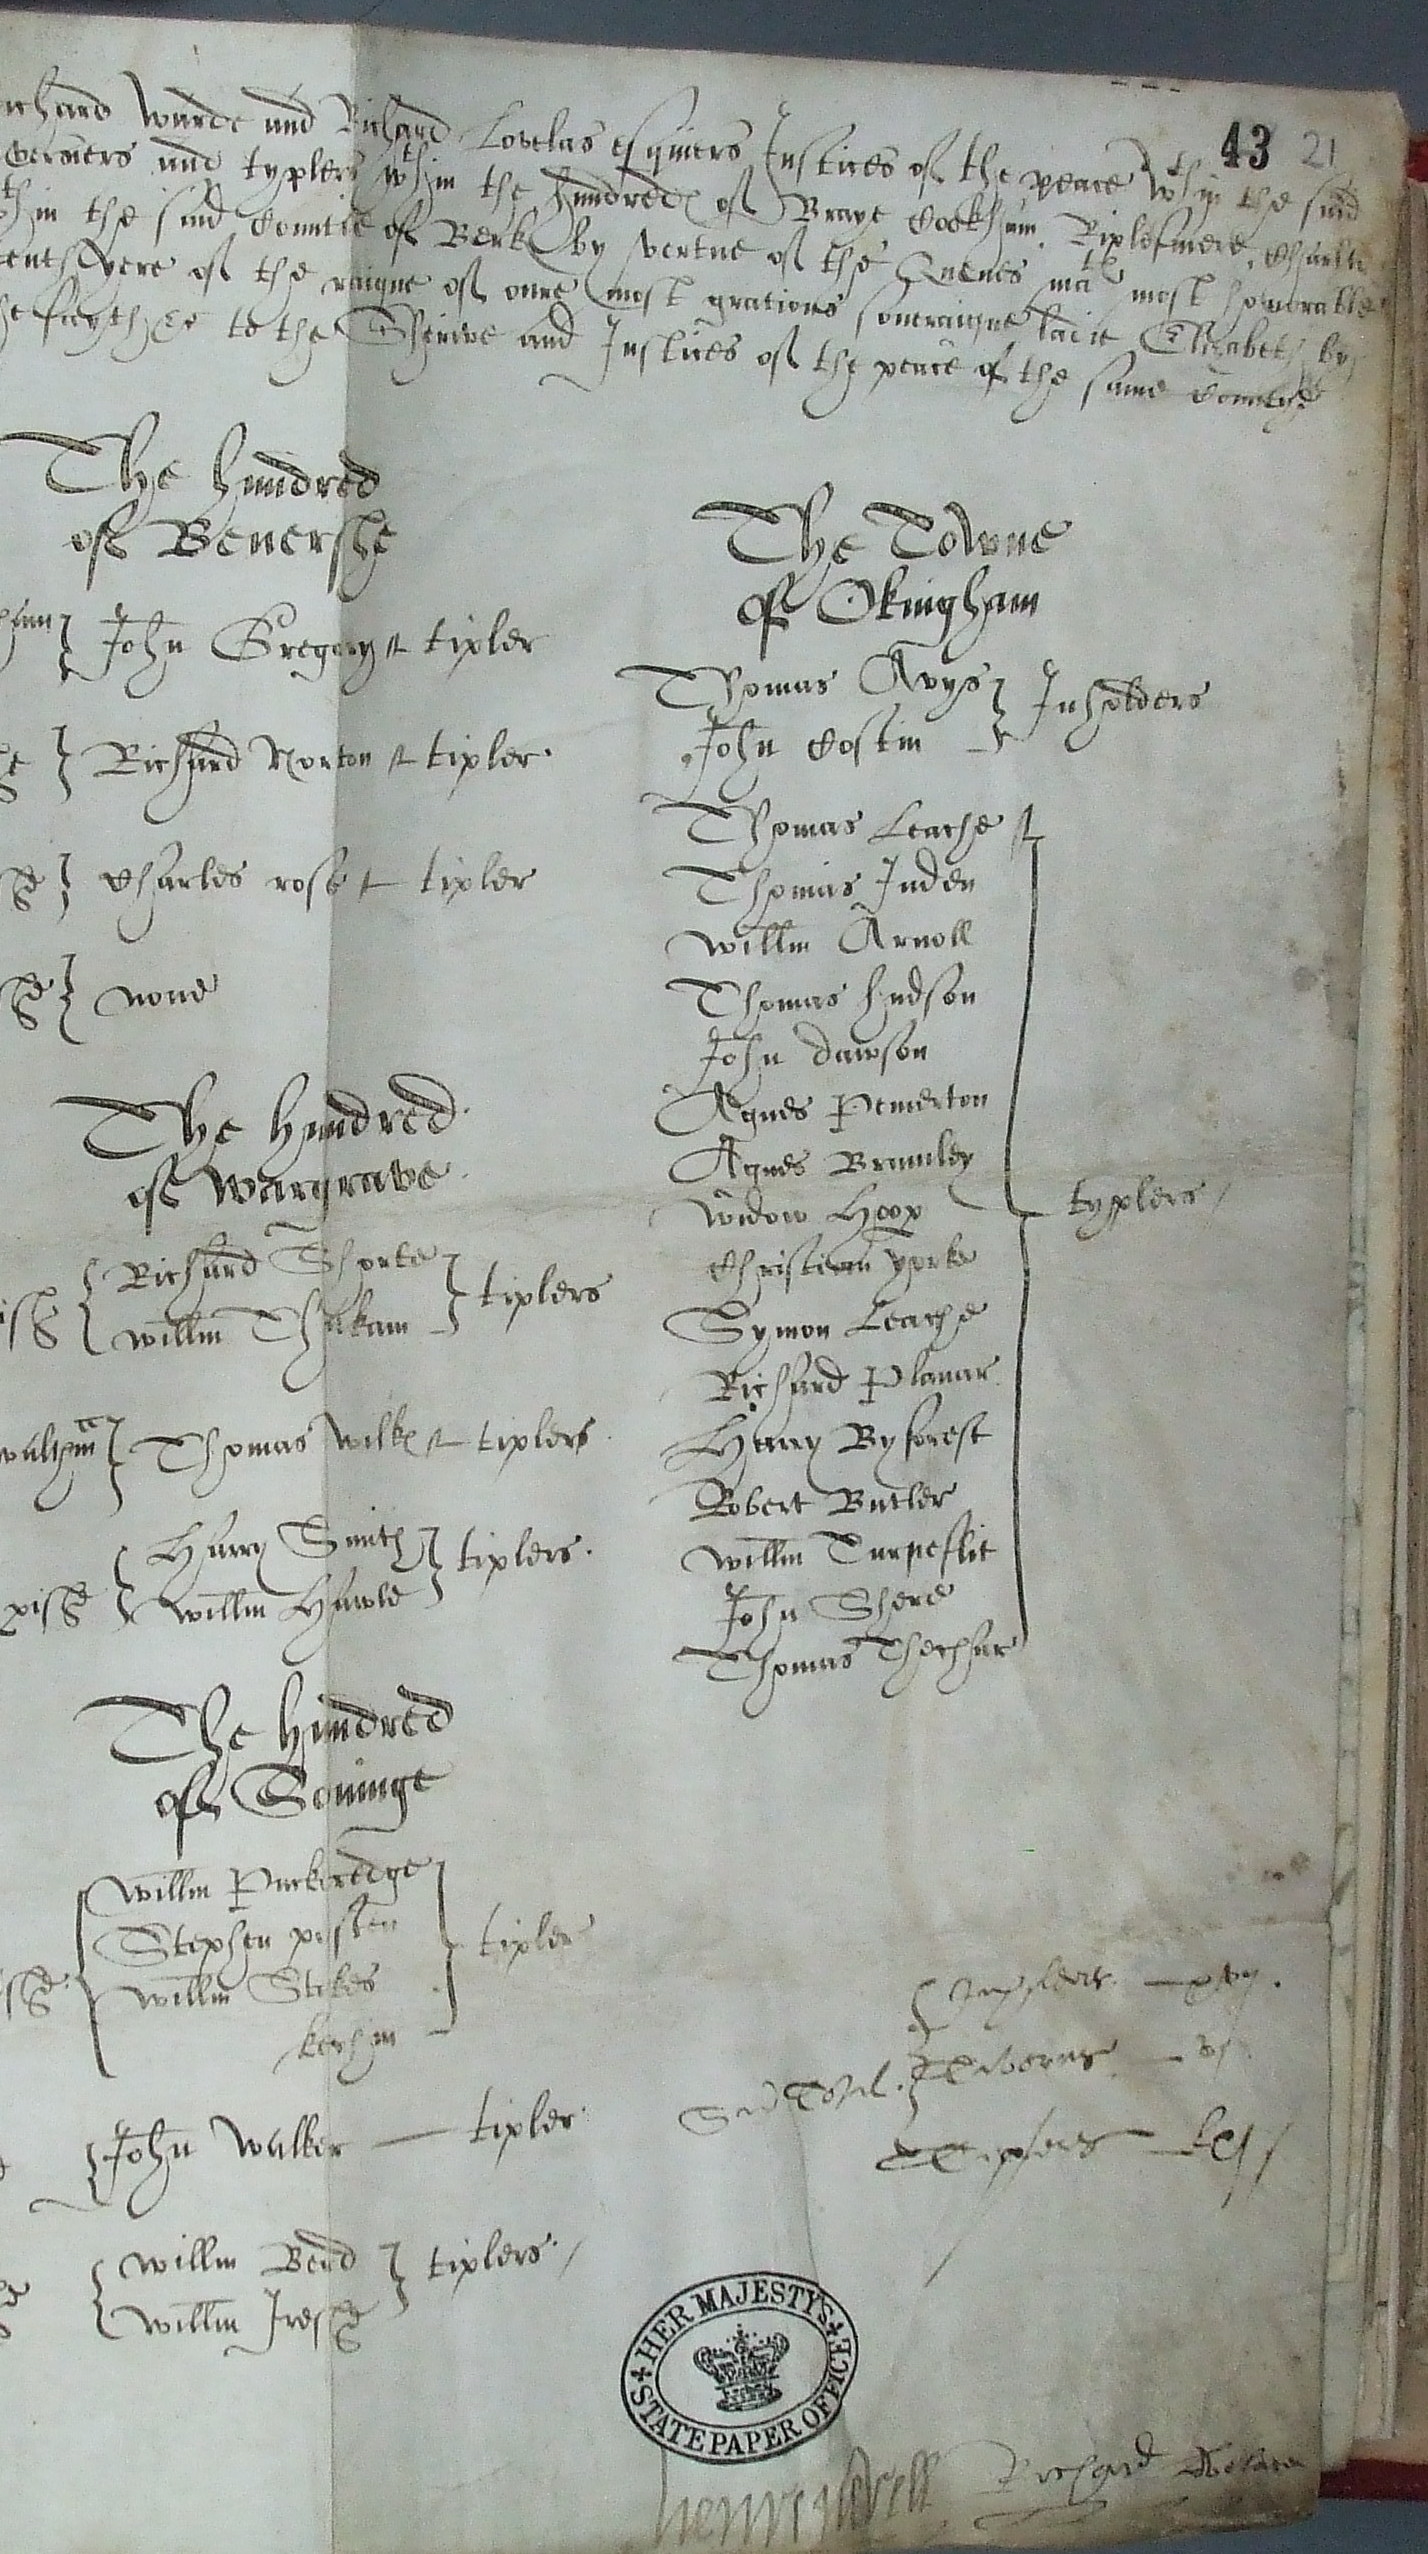 43 21
Richard Warde and Richard Lovelas esquiers Justices of the peace wthin the said
Taverners and typlers wthin the hundreds of Braye Cookham Riplesmere Charlto
wthin the said Countie of Berk by vertue of the Quenes matis most honorable
yere of the raigne of oure most gratious soveraigne ladie Elizabeth by
the faythe &c to the Shirive and Justices of the peace of the same Countye
The hundred
of Benershe
John Gregory tipler
Richard Norton tipler
Charles rose tipler
none
The hundred
of Wargrave
Richard Shorte
Willm Thakam
tiplers
Waltham Thomas Wilks tiplers
Harry Smith
Willm Hawle
tiplers
The hundred
of Soninge
Willm Puckeredge
Stephen
Willm Stokes
tipler
John Walker tipler
Willm Bend
Willm
tiplers
The Towne
of Okingham
Thomas Avys
John Costin
Inholders
Thomas Leache
Thomas Inden
Willm Arnoll
Thomas Hudson
John Dawson
Agnes Pemerton
Agnes Bramley
Widow Hoop
Christian Yorke
Symon Leache
Richard Planar
Henry Byforest
Robert Butler
Willm Turpeflit
John Shere
Thomas Thechar
typlers
Taverns vj
Tiplers
HER MAJESTY'S
STATE PAPER OFFICE
henry nevell Richard Lovelace